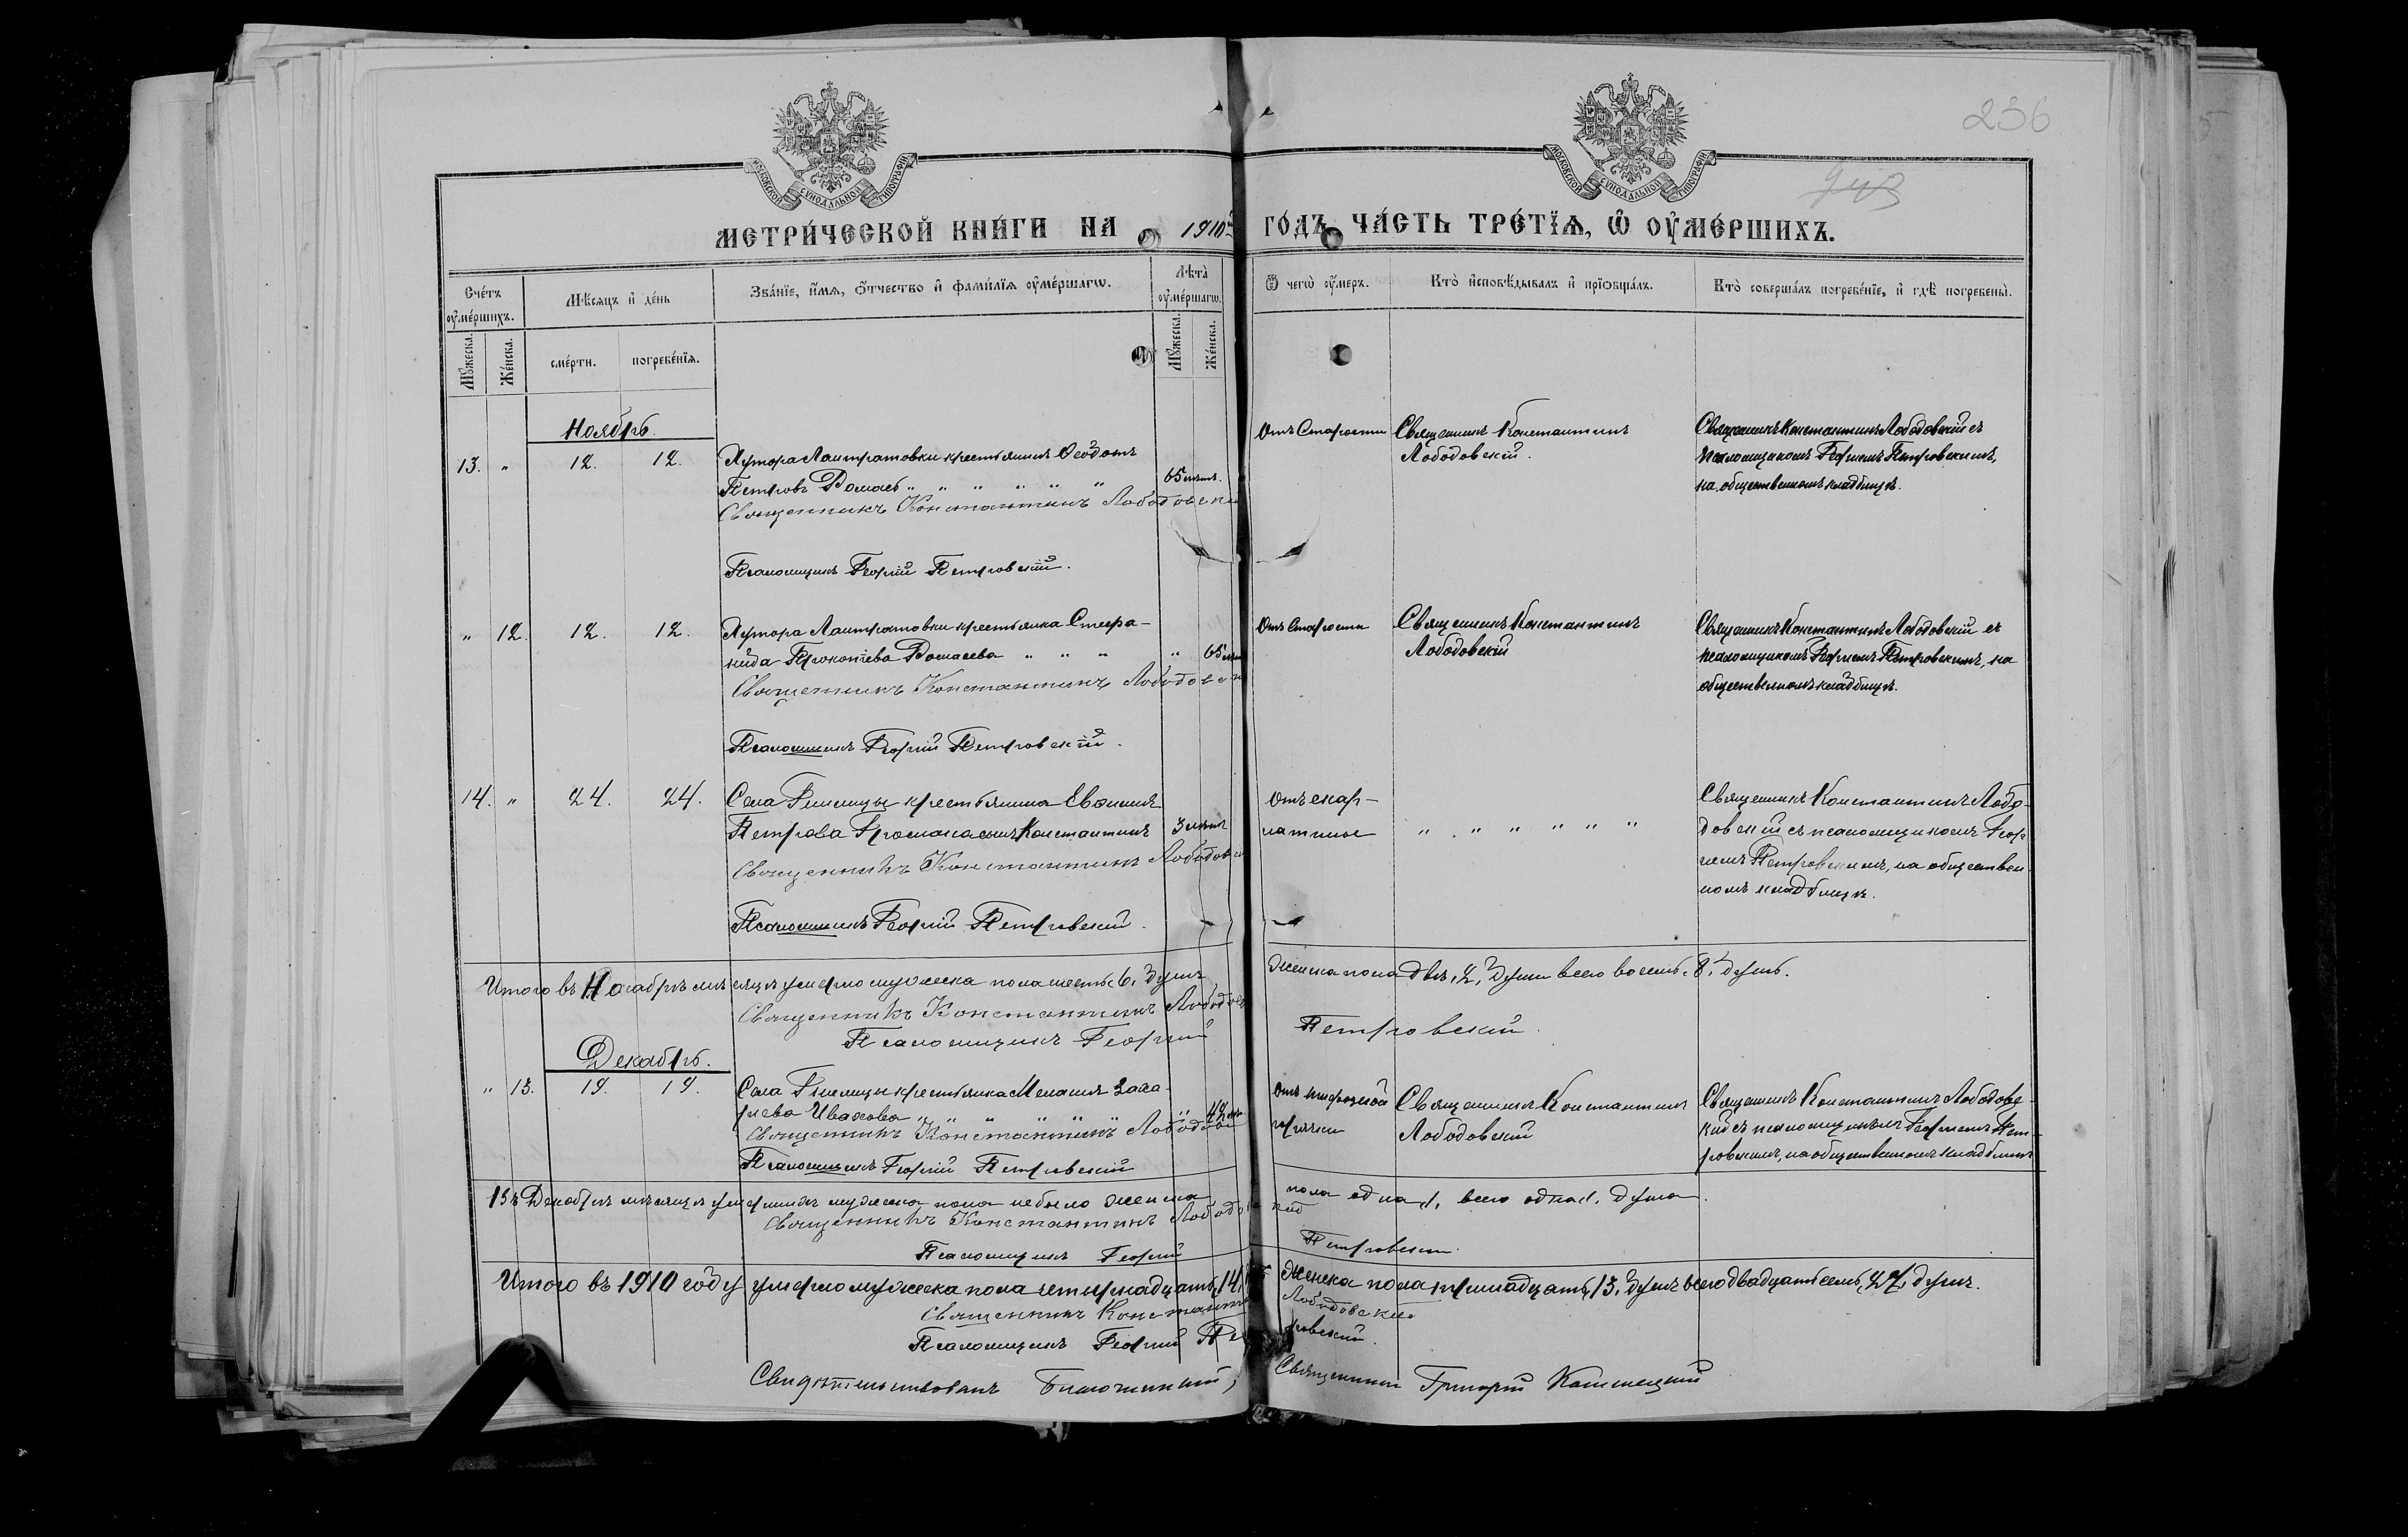 236
МОСКОВСКОЙ СѴНОДАЛЬНОЙ ТИПОГРАФІИ
МОСКОВСКОЙ СѴНОДАЛЬНОЙ ТИПОГРАФІИ
МЕТРИ́ЧЕСКОЙ КНИ́ГИ НА 1910й ГО́ДЪ, ЧА́СТЬ ТРЕ́ТЇѦ, Ѡ҆ ОУ҆МЕ́РШИХЪ.
Сче́тъ оу҆ме́ршихъ.
Мѣ́сѧцъ и҆ де́нь
Зва́нїе, и҆́мѧ, ѻ҆́тчество и҆ фами́лїѧ оу҆ме́ршагѡ.
Лѣта̀ оу҆ме́ршагѡ.
Ѿ чегѡ̀ оу҆́меръ.
Кто̀ и҆сповѣ́дывалъ и҆ прїѡбща́лъ.
Кто̀ соверша́лъ погребе́нїе, и҆ гдѣ̀ погребены̀.
Мꙋ́жеска. Же́нска.
сме́рти. погребе́нїѧ.
Мꙋ́жеска. Же́нска.
Ноябрь.
13. " 12. 12. Хутора Лантратовки крестьянинъ Ѳеодотъ
Петровъ " " " " " " 65 лѣтъ.
Священникъ Константинъ Лободовскій
Псаломщикъ Георгій Петровскій.
Отъ Старости
Священникъ Константинъ
Лободовскій.
Священникъ Константинъ Лободовскій съ
псаломщикомъ Георгіемъ Петровскимъ,
на общественномъ кладбищѣ.
" 12. 12. 12. Хутора Лантратовки крестьянка Стефа-
нида Прокопіева " " " " 65 лѣтъ
Священникъ Константинъ Лободовскій
Псаломщикъ Георгій Петровскій.
Отъ Старости
Священникъ Константинъ
Лободовскій
Священникъ Константинъ Лободовскій съ
псаломщикомъ Георгіемъ Петровскимъ, на
общественномъ кладбищѣ.
14. " 24. 24. Села крестьянина
Петрова сынъ Константинъ 3 лѣтъ
Священникъ Константинъ Лободовскій
Псаломщикъ Георгій Петровскій.
Отъ скар-
латины
" " " " " "
Священникъ Константинъ Лобо-
довскій съ псаломщикомъ Геор-
гіемъ Петровскимъ, на обществен-
номъ кладбищѣ.
Итого въ Ноябрѣ мѣсяцѣ умерло мужеска пола шесть, 6, душъ,
женска пола двѣ, 2, души всего восемь, 8, душъ.
Священникъ Константинъ Лободовскій
Псаломщикъ Георгій Петровскій.
Декабрь.
" 13. 19. 19. Села крестьянка Заха-
ріева Ивахова " " " " " " " 42 лѣтъ
Священникъ Константинъ Лободовскій
Псаломщикъ Георгій Петровскій
горячки
Священникъ Константинъ
Лободовскій
Священникъ Константинъ Лободовс-
кій съ псаломщикомъ Георгіемъ Пет-
ровскимъ, на общественномъ кладбищѣ
Въ Декабрѣ мѣсяцѣ умершихъ мужеска пола не было женска
пола одна, 1, всего одна, 1, душа.
Священникъ Константинъ Лободовскій
Псаломщикъ Георгій Петровскій.
Итого въ 1910 году умерло мужеска пола четырнадцать, 14,
женска пола тринадцать, 13, душъ всего двадцать семь, 27, душъ.
Священникъ Константинъ Лободовскій
Псаломщикъ Георгій Петровскій.
Священникъ Григорій